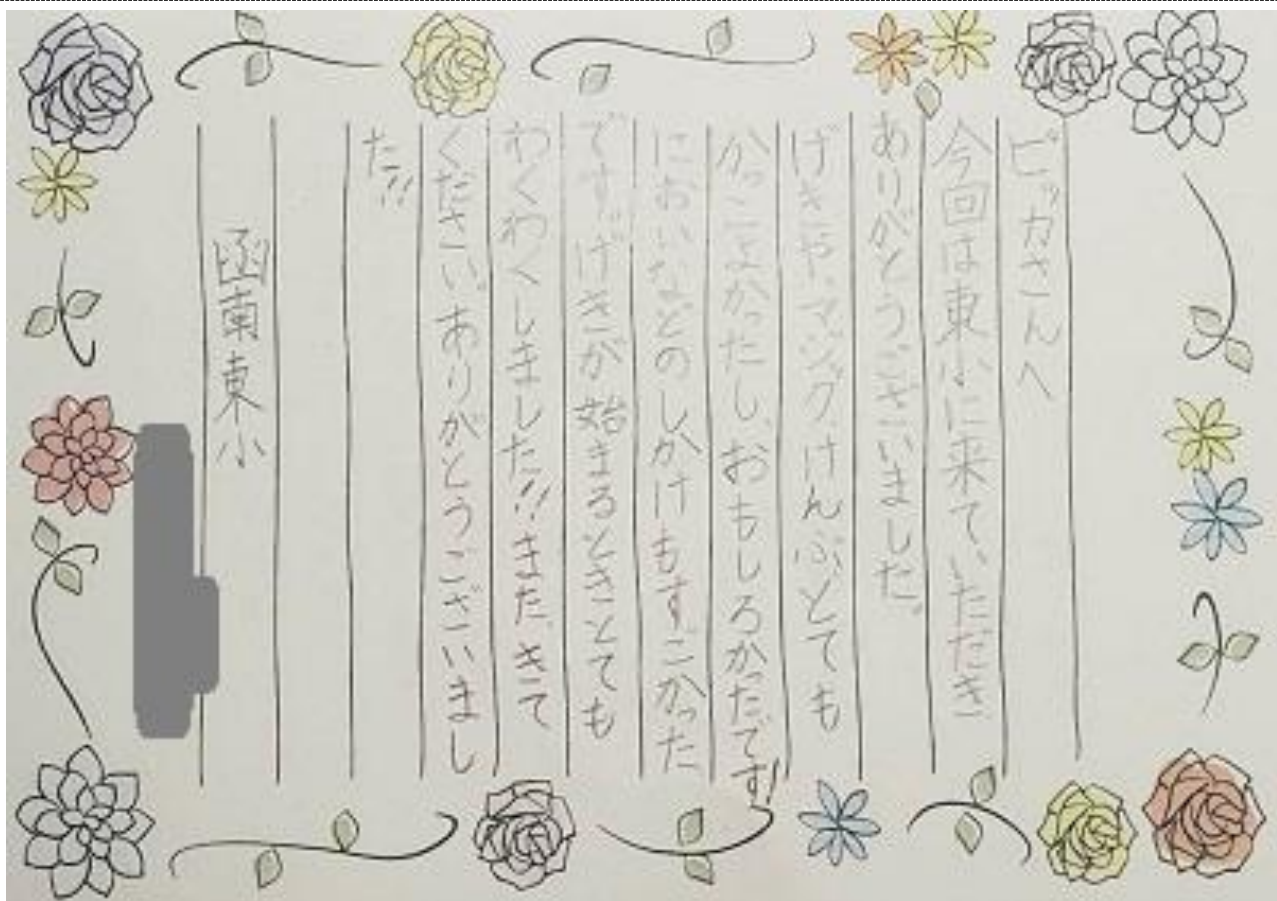 ピッカさんへ
今回は東小に来ていただき
ありがとうございました。
げきや、マジック、けんぶとても
かっこよかったし、おもしろかたです!
においなどのしかけもすごかった
です。げきが始まるときとても
わくわくしました!!またきて
ください。ありがとうございまし
た!!
函南東小